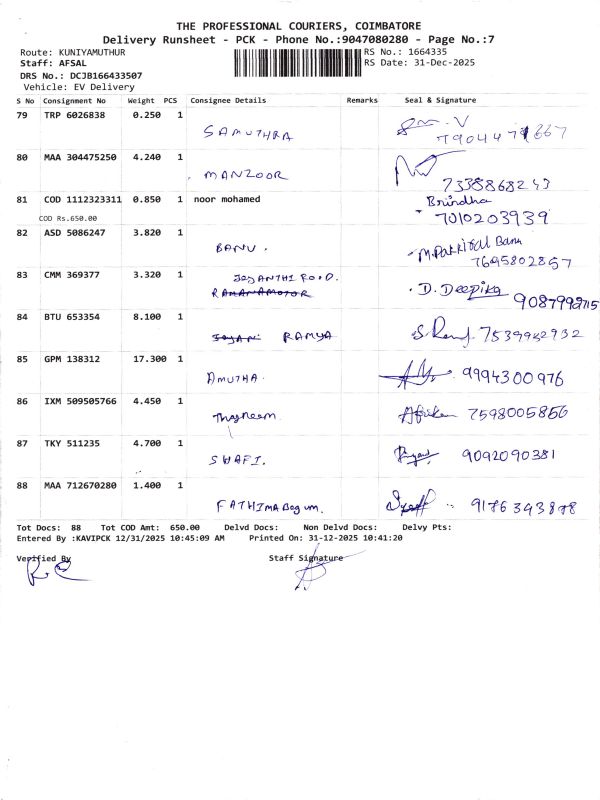 THE PROFESSIONAL COURIERS, COIMBATORE
Delivery Runsheet - PCK - Phone No.:9047080280 - Page No.:7
Route: KUNIYAMUTHUR RS No.: 1664335
Staff: AFSAL RS Date: 31-Dec-2025
DRS No.: DCJB166433507
Vehicle: EV Delivery
S No Consignment No Weight PCS Consignee Details Remarks Seal & Signature
79 TRP 6026838 0.250 1
SAMUTHRA
80 MAA 304475250 4.240 1
MANZOOR 7338868243
81 COD 1112323311 0.850 1 noor mohamed Brindha
COD Rs.650.00 7010203939
82 ASD 5086247 3.820 1
BANU. Banu
7695802857
83 CMM 369377 3.320 1 JOYANTHI FOOD.
D. Deepika 9087992715
84 BTU 653354 8.100 1
RAMYA 7539982932
85 GPM 138312 17.300 1
AMUTHA. 9994300976
86 IXM 509505766 4.450 1
Thasneem. 7598005856
87 TKY 511235 4.700 1
SHAFI. 9092090381
88 MAA 712670280 1.400 1
FATHIMA Begum. 9176343878
Tot Docs: 88 Tot COD Amt: 650.00 Delvd Docs: Non Delvd Docs: Delvy Pts:
Entered By :KAVIPCK 12/31/2025 10:45:09 AM Printed On: 31-12-2025 10:41:20
Verified By Staff Signature